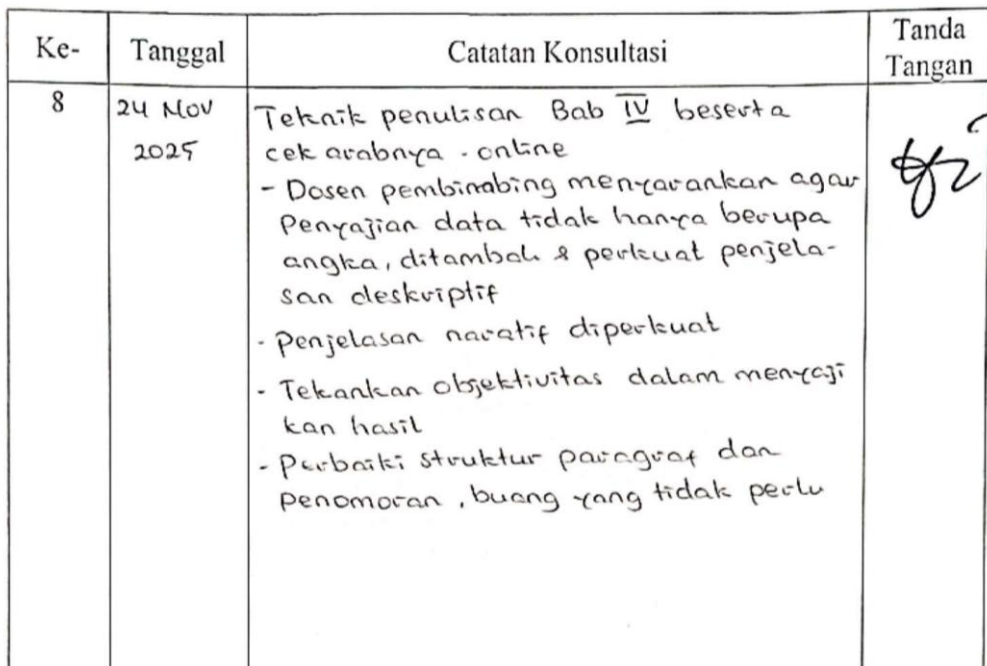 Ke-
Tanggal
Catatan Konsultasi
Tanda
Tangan
8
24 Nov
2025
Teknik penulisan Bab IV beserta
cek arabnya . online
- Dosen pembinabing menyarankan agar
Penyajian data tidak hanya berupa
angka, ditambah & perkuat penjela-
san deskriptif
- Penjelasan naratif diperkuat
- Tekankan objektivitas dalam menyaji
kan hasil
- Perbaiki struktur paragraf dan
Penomoran, buang yang tidak perlu